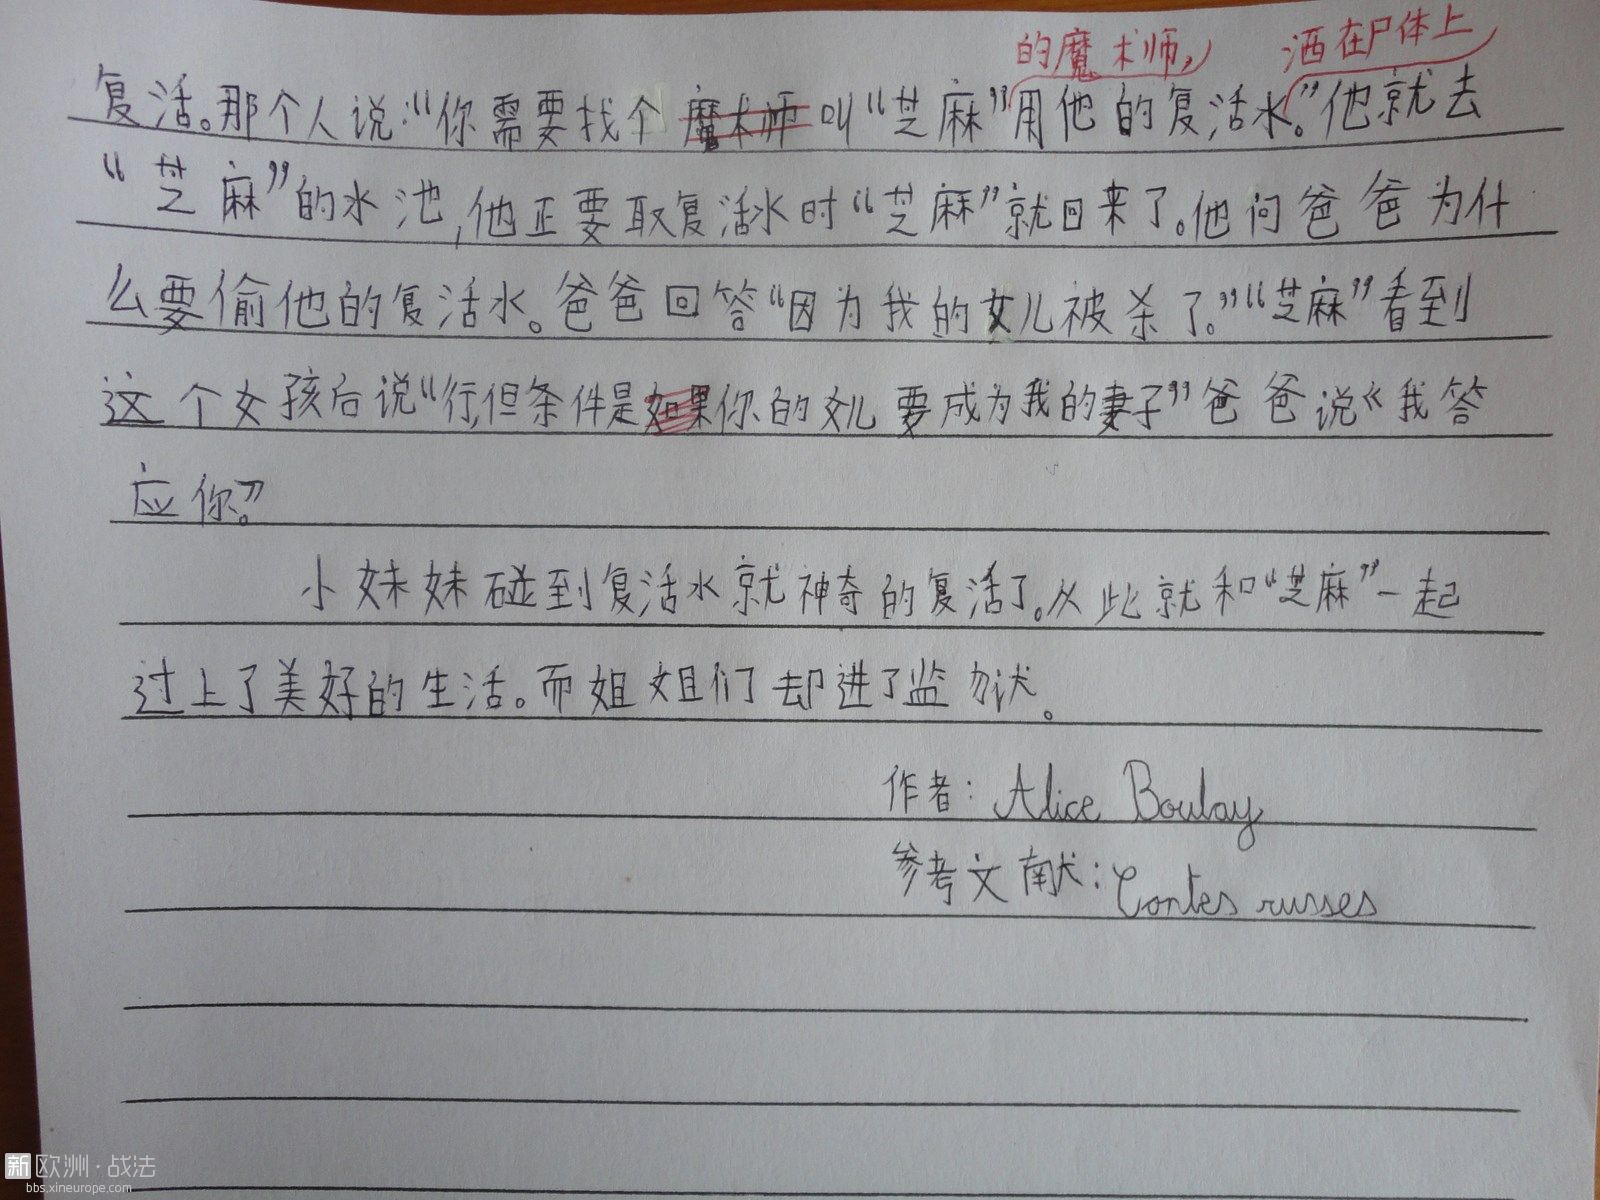 的魔术师， 洒在尸体上
复活。那个人说：“你需要找个魔术师叫“芝麻”用他的复活水。”他就去
“芝麻”的水池，他正要取复活水时“芝麻”就回来了。他问爸爸为什
么要偷他的复活水。爸爸回答“因为我的女儿被杀了。”“芝麻”看到
这个女孩后说“行，但条件是如果你的女儿要成为我的妻子”爸爸说“我答
应你。”
小妹妹碰到复活水就神奇的复活了。从此就和“芝麻”一起
过上了美好的生活。而姐姐们却进了监狱。
作者：Alice Boulay
参考文献：Contes russes
新欧洲·战法
bbs.xineurope.com